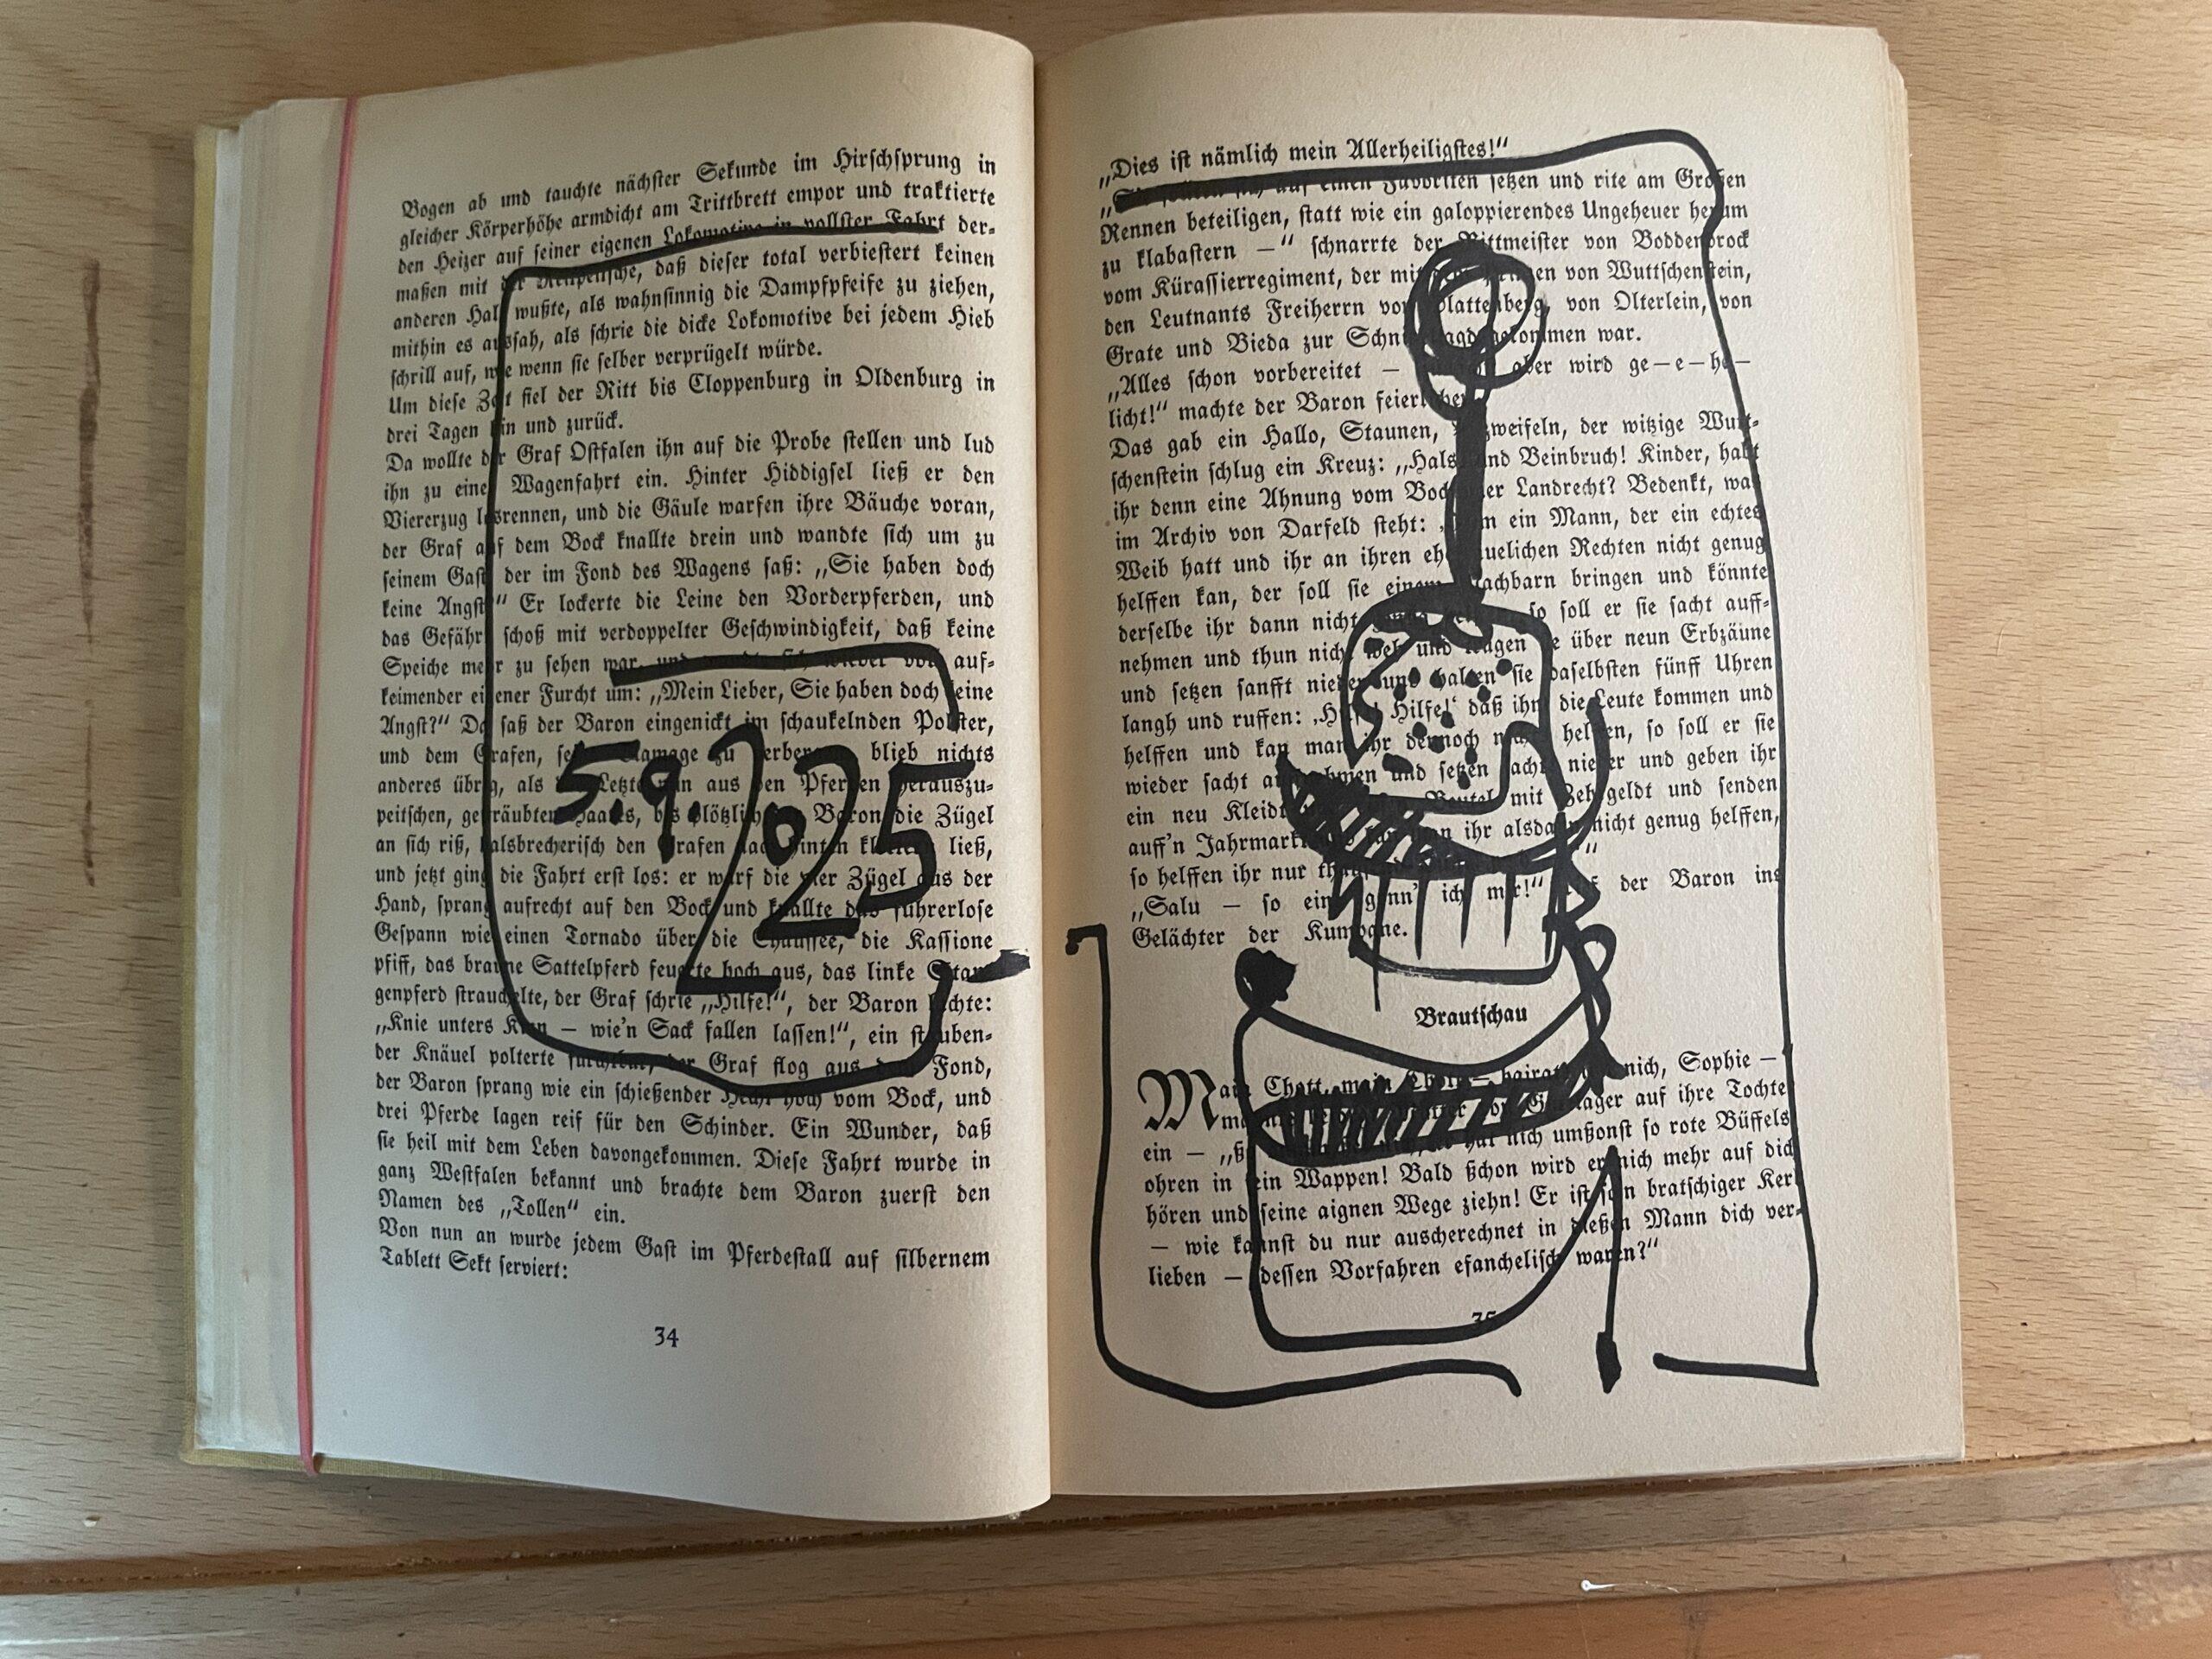 Bogen ab und tauchte nächster Sekunde im Hirschsprung in
gleicher Körperhöhe armdicht am Trittbrett empor und traktierte
den Heizer auf seiner eigenen Lokomotive in vollster Fahrt der-
maßen mit der Reitpeitsche, daß dieser total verbiestert keinen
anderen Halt wußte, als wahnsinnig die Dampfpfeife zu ziehen,
mithin es aussah, als schrie die dicke Lokomotive bei jedem Hieb
schrill auf, wie wenn sie selber verprügelt würde.
Um diese Zeit fiel der Ritt bis Cloppenburg in Oldenburg in
drei Tagen hin und zurück.
Da wollte der Graf Ostfalen ihn auf die Probe stellen und lud
ihn zu einer Wagenfahrt ein. Hinter Hiddigsel ließ er den
Viererzug losrennen, und die Gäule warfen ihre Bäuche voran,
der Graf auf dem Bock knallte drein und wandte sich um zu
seinem Gast, der im Fond des Wagens saß: „Sie haben doch
keine Angst?“ Er lockerte die Leine den Vorderpferden, und
das Gefährt schoß mit verdoppelter Geschwindigkeit, daß keine
Speiche mehr zu sehen war, und wandte sich wieder voll auf-
keimender eigener Furcht um: „Mein Lieber, Sie haben doch keine
Angst?“ Da saß der Baron eingenickt im schaukelnden Polster,
und dem Grafen, seine Blamage zu verbergen, blieb nichts
anderes übrig, als das Letzte nun aus den Pferden herauszu-
peitschen, gesträubten Haares, bis plötzlich der Baron die Zügel
an sich riß, halsbrecherisch den Grafen nach hinten klettern ließ,
und jetzt ging die Fahrt erst los: er warf die vier Zügel aus der
Hand, sprang aufrecht auf den Bock und knallte das führerlose
Gespann wie einen Tornado über die Chaussee, die Kassione
pfiff, das braune Sattelpferd feuerte hoch aus, das linke Stan-
genpferd strauchelte, der Graf schrie „Hilfe!“, der Baron lachte:
„Knie unters Kinn — wie'n Sack fallen lassen!“, ein stauben-
der Knäuel polterte furchtbar, der Graf flog aus dem Fond,
der Baron sprang wie ein schießender Hecht hoch vom Bock, und
drei Pferde lagen reif für den Schinder. Ein Wunder, daß
sie heil mit dem Leben davongekommen. Diese Fahrt wurde in
ganz Westfalen bekannt und brachte dem Baron zuerst den
Namen des „Tollen“ ein.
Von nun an wurde jedem Gast im Pferdestall auf silbernem
Tablett Sekt serviert:
34
5.9.2025
„Dies ist nämlich mein Allerheiligstes!“
„Sie sollten sich auf einen Favoriten setzen und rite am Großen
Rennen beteiligen, statt wie ein galoppierendes Ungeheuer herum
zu klabastern —“ schnarrte der Rittmeister von Boddenbrock
vom Kürassierregiment, der mit dem Prinzen von Wuttschenstein,
den Leutnants Freiherrn von Plattenberg, von Olterlein, von
Grate und Bieda zur Schnitzeljagd gekommen war.
„Alles schon vorbereitet — aber wird ge—e—he—
licht!“ machte der Baron feierlicher.
Das gab ein Hallo, Staunen, Bezweifeln, der witzige Wutt-
schenstein schlug ein Kreuz: „Hals- und Beinbruch! Kinder, habt
ihr denn eine Ahnung vom Bochumer Landrecht? Bedenkt, was
im Archiv von Darfeld steht: ‚Item ein Mann, der ein echtes
Weib hatt und ihr an ihren ehefrauelichen Rechten nicht genug
helffen kan, der soll sie einem Nachbarn bringen und könnte
derselbe ihr dann nicht genug helffen, so soll er sie sacht auff-
nehmen und thun nicht weh und tragen sie über neun Erbzäune
und setzen sanfft nieder und halten sie daselbsten fünff Uhren
langh und ruffen: ‚Hilfe! Hilfe!‘ daß ihm die Leute kommen und
helffen und kan man ihr dennoch nicht helffen, so soll er sie
wieder sacht auffnehmen und setzen sacht nieder und geben ihr
ein neu Kleidt und Beutel mit Zehrgeldt und senden
auff'n Jahrmarkt, und kan ihr alsdann nicht genug helffen,
so helffen ihr nur
„Salu — so eine gönn' ich mir!“ rief der Baron ins
Gelächter der Kumpane.
Brautschau
Main Chott, main Chott — hairat nich, Sophie —
auf ihre Tochter
ein — hat nich umßonst so rote Büffels-
ohren in sein Wappen! Bald ßchon wird er nich mehr auf dich
hören und seine aignen Wege ziehn! Er ist so'n bratschiger Kerl
— wie kannst du nur auscherechnet in dießen Mann dich ver-
lieben — dessen Vorfahren efanchelisch waren?“
35